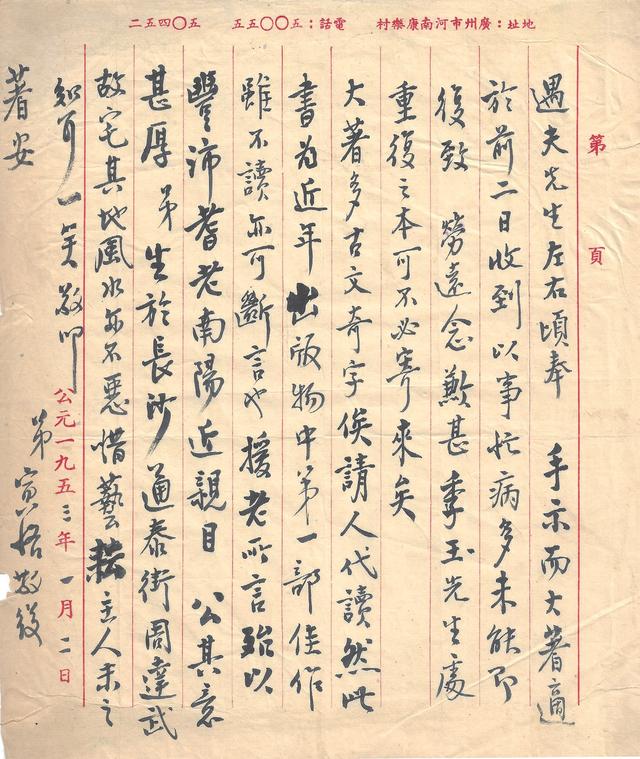 地址：廣州市河南康樂村 電話：五〇〇五五 五〇四五二
第 頁
遇夫先生左右頃奉 手示而大著適
於前二日收到以事忙病多未能即
復致 勞遠念歉甚季玉先生處
重復之本可不必寄來矣
大著多古文奇字俟請人代讀然此
書為近年出版物中第一部佳作
雖不讀亦可斷言也援老所言殆以
豐沛耆老南陽近親目 公其意
甚厚 弟生於長沙通泰街周達武
故宅其地風水亦不惡惜藝耘主人未之
知耳一笑敬叩
公元一九五三年一月二日
著安
弟 寅恪敬復